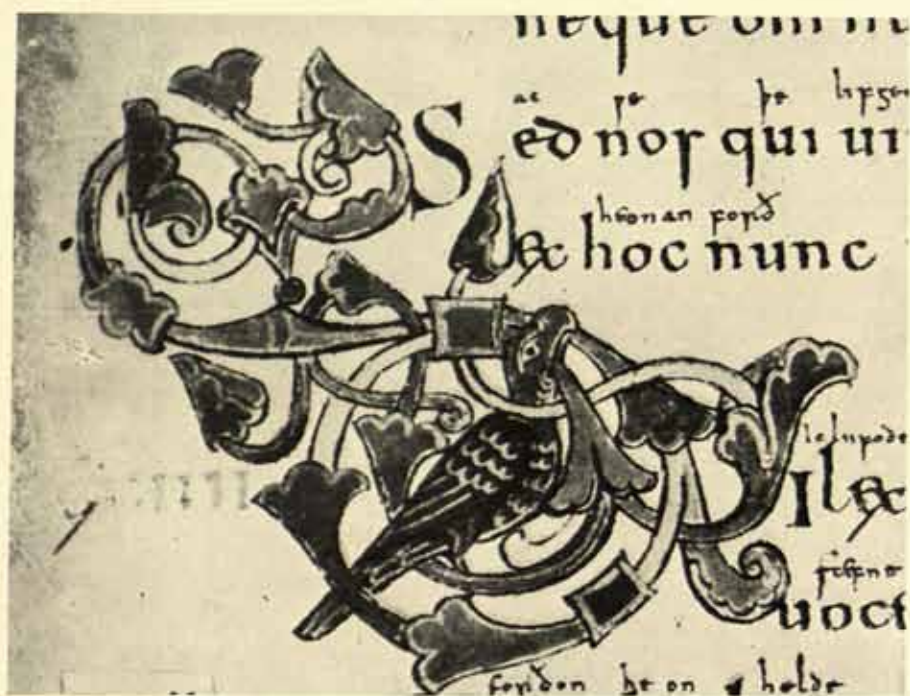 neque omn
ac ƿe þe lifgen
Sed nos qui ui
heonan forð
ex hoc nunc
ic lufode
Dilex
stefne
uoce
forðon he on helde